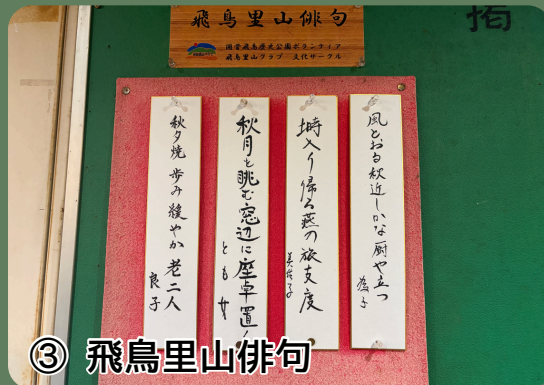 飛鳥里山俳句
国営飛鳥歴史公園ボランティア
飛鳥里山クラブ 文化サークル
風とおる秋近しかな厨や立つ
塒入り帰る燕の旅支度
美佐子
秋月を眺む窓辺に座卓置く
とも女
秋夕焼 歩み緩やか 老二人
良子
③ 飛鳥里山俳句